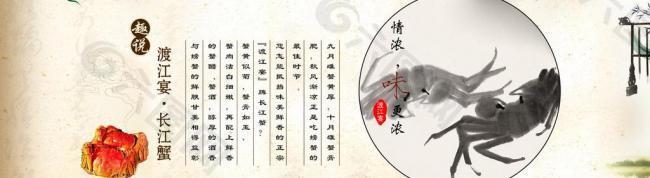 趣说
渡江宴·长江蟹
九月雌蟹黄厚,十月雄蟹膏
肥,秋风渐凉正是吃螃蟹的
最佳时节。
您怎能抵挡味美鲜香的正宗
『渡江宴』牌长江蟹?
蟹黄似菊,蟹膏如玉,
蟹肉洁白细嫩,再配上鲜香
的蟹醋,蟹酒,醇厚的酒香
与螃蟹的鲜肤甘美相得益彰
情浓,味更浓
渡江宴